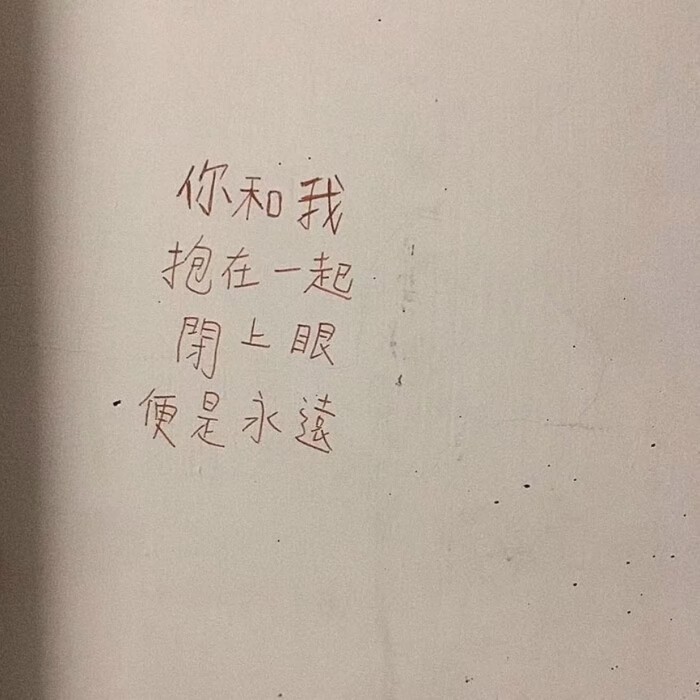 你和我
抱在一起
閉上眼
便是永遠